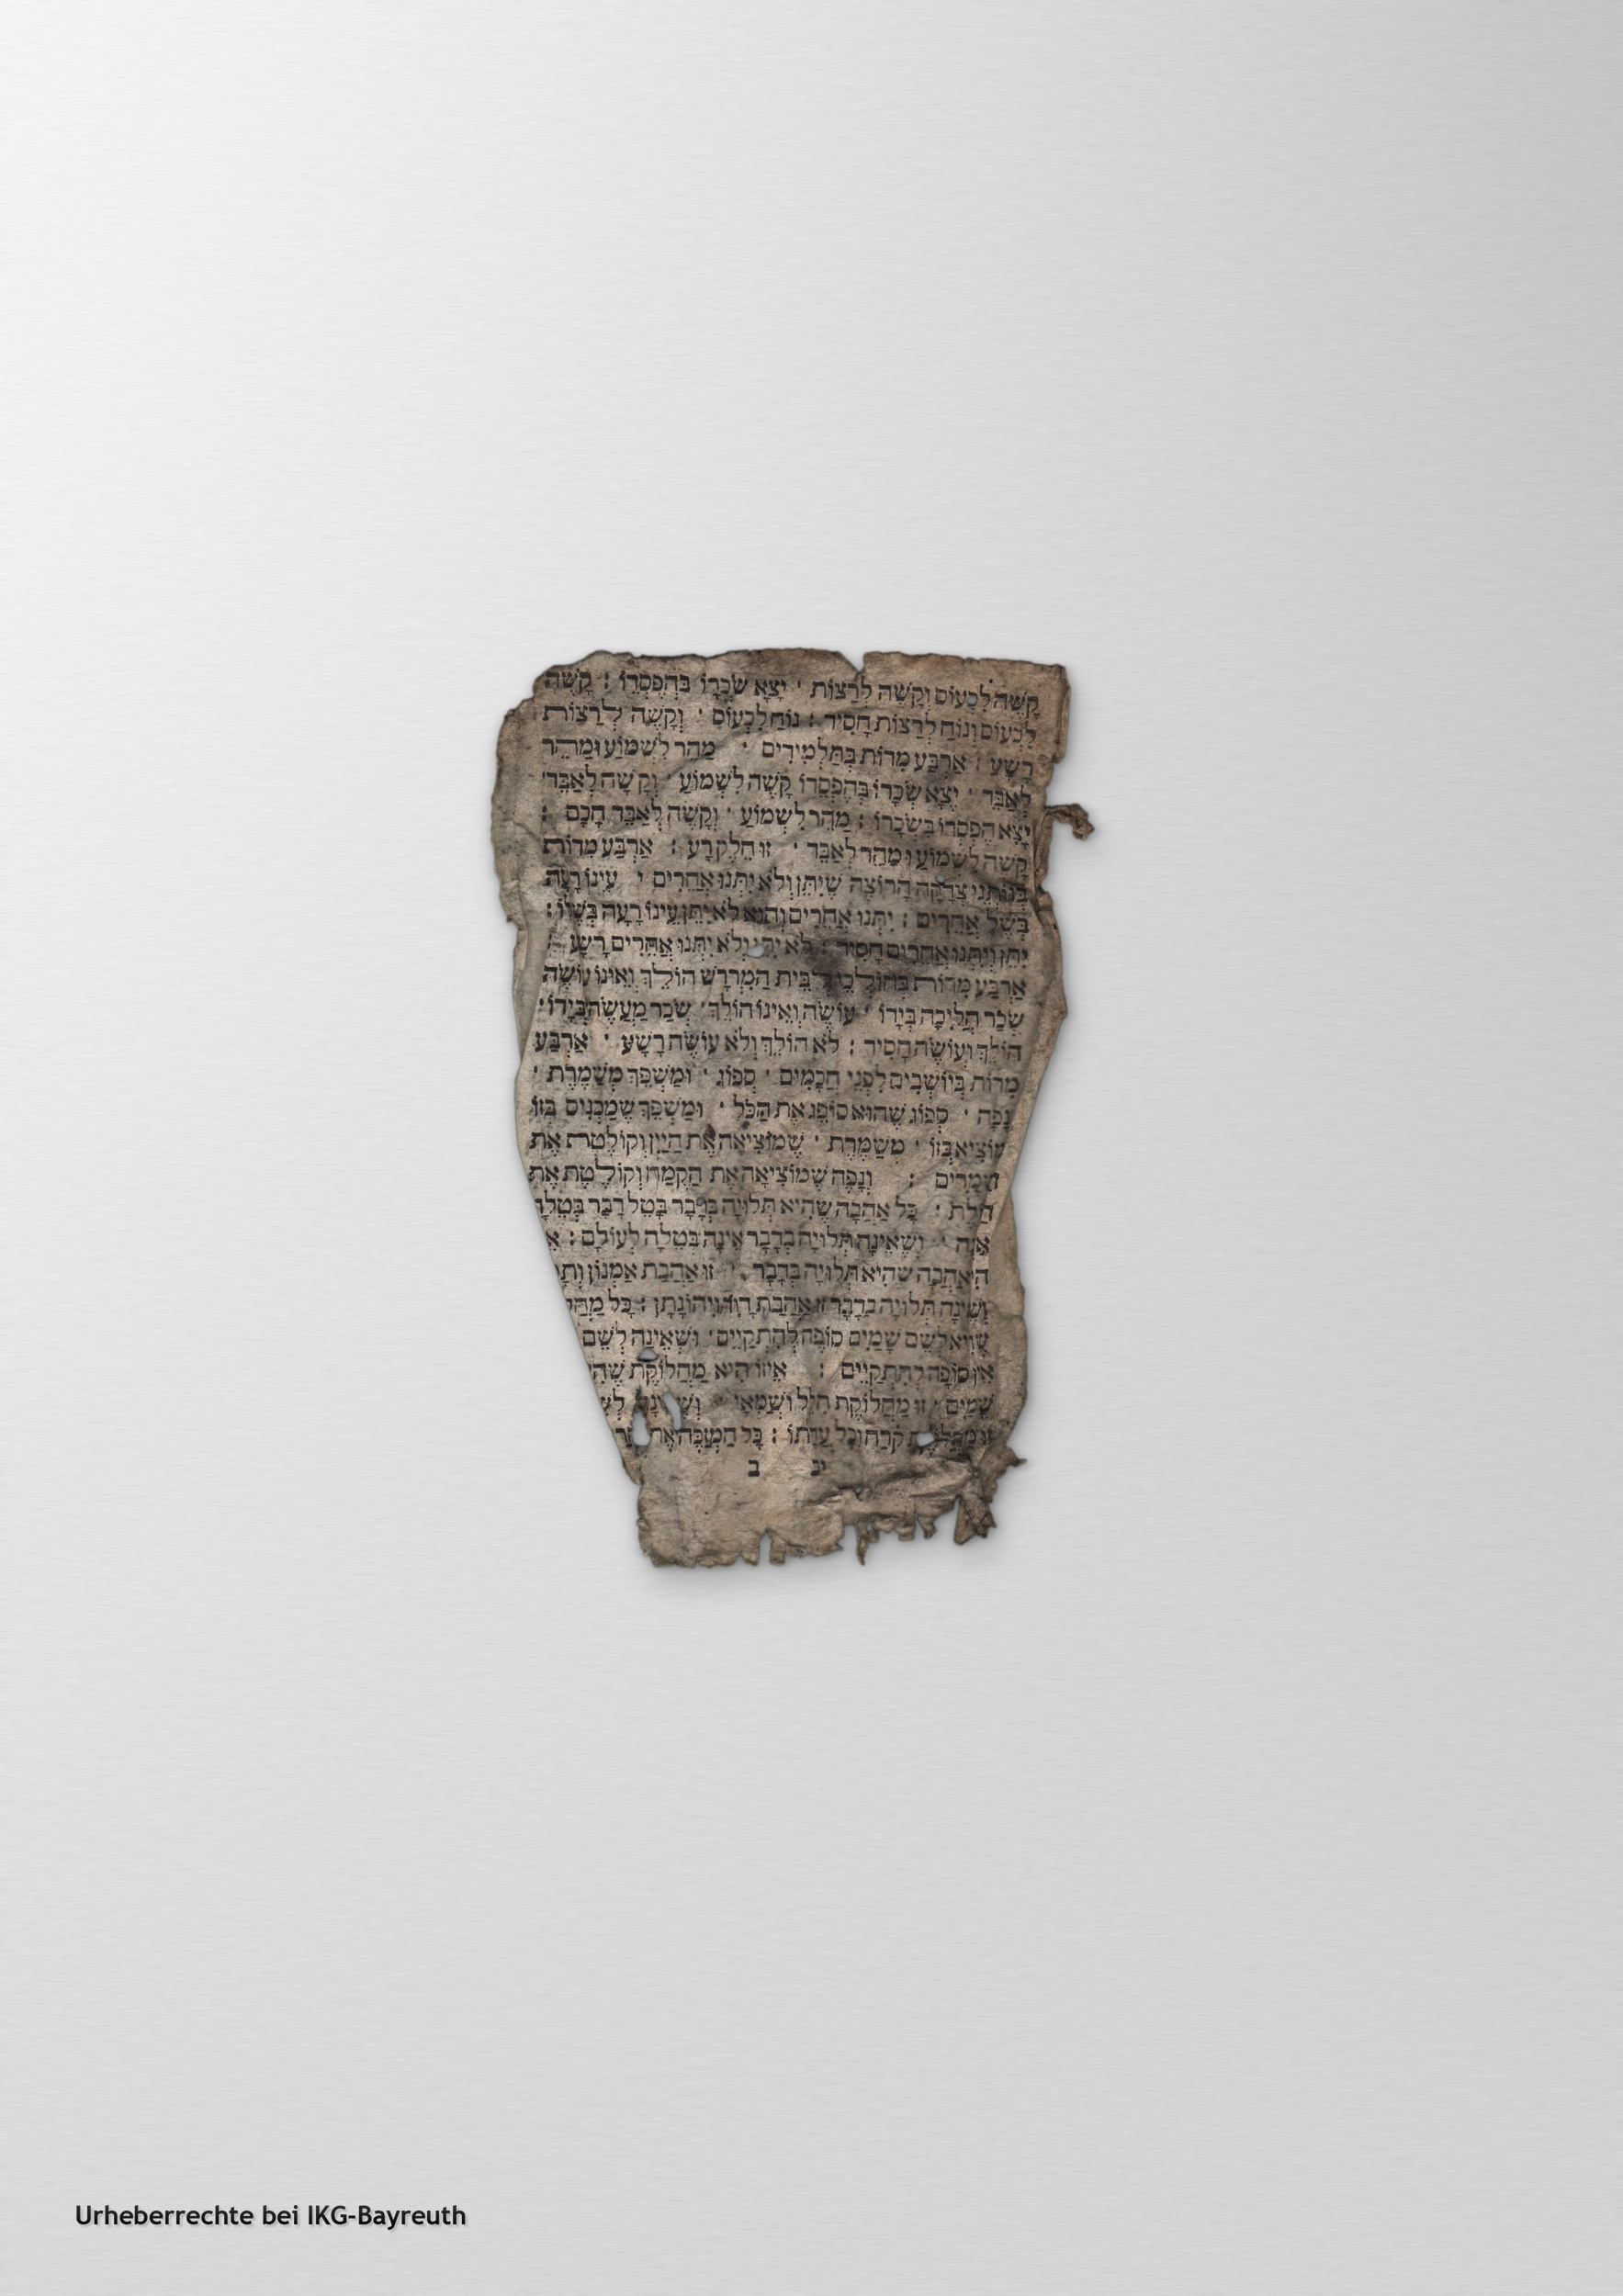 קָשֶׁה לִכְעוֹס וְקָשֶׁה לִרְצוֹת · יָצָא שְׂכָרוֹ בְּהֶפְסֵדוֹ : קָשֶׁה
לִכְעוֹס וְנוֹחַ לִרְצוֹת חָסִיד : נוֹחַ לִכְעוֹס · וְקָשֶׁה לִרְצוֹת
רָשָׁע : אַרְבַּע מִדּוֹת בְּתַלְמִידִים · מַהֵר לִשְׁמוֹעַ וּמַהֵר
לְאַבֵּד · יָצָא שְׂכָרוֹ בְּהֶפְסֵדוֹ קָשֶׁה לִשְׁמוֹעַ · וְקָשֶׁה לְאַבֵּד ·
יָצָא הֶפְסֵדוֹ בִּשְׂכָרוֹ : מַהֵר לִשְׁמוֹעַ · וְקָשֶׁה לְאַבֵּד חָכָם :
קָשֶׁה לִשְׁמוֹעַ וּמַהֵר לְאַבֵּד · זוּ חֵלֶק רָע : אַרְבַּע מִדּוֹת
בְּנוֹתְנֵי צְדָקָה הָרוֹצֶה שֶׁיִּתֵּן וְלֹא יִתְּנוּ אֲחֵרִים · עֵינוֹ רָעָה
בְּשֶׁל אֲחֵרִים : יִתְּנוּ אֲחֵרִים וְהוּא לֹא יִתֵּן עֵינוֹ רָעָה בְּשֶׁלּוֹ :
יִתֵּן וְיִתְּנוּ אֲחֵרִים חָסִיד : לֹא יִתֵּן וְלֹא יִתְּנוּ אֲחֵרִים רָשָׁע :
אַרְבַּע מִדּוֹת בְּהוֹלְכֵי בֵּית הַמִּדְרָשׁ הוֹלֵךְ וְאֵינוֹ עוֹשֶׂה
שְׂכַר הֲלִיכָה בְּיָדוֹ · עוֹשֶׂה וְאֵינוֹ הוֹלֵךְ · שְׂכַר מַעֲשֶׂה בְּיָדוֹ ·
הוֹלֵךְ וְעוֹשֶׂה חָסִיד : לֹא הוֹלֵךְ וְלֹא עוֹשֶׂה רָשָׁע · אַרְבַּע
מִדּוֹת בְּיוֹשְׁבִים לִפְנֵי חֲכָמִים · סְפוֹג · וּמַשְׁפֵּךְ מְשַׁמֶּרֶת ·
וְנָפָה · סְפוֹג שֶׁהוּא סוֹפֵג אֶת הַכֹּל · וּמַשְׁפֵּךְ שֶׁמַּכְנִיס בְּזוֹ
מוֹצִיא בְּזוֹ · מְשַׁמֶּרֶת · שֶׁמוֹצִיאָה אֶת הַיַּיִן וְקוֹלֶטֶת אֶת
הַשְּׁמָרִים : וְנָפָה שֶׁמוֹצִיאָה אֶת הַקֶּמַח וְקוֹלֶטֶת אֶת
הַסֹּלֶת · כָּל אַהֲבָה שֶׁהִיא תְּלוּיָה בְּדָבָר בָּטֵל דָּבָר בְּטֵלָה
אַהֲבָה · וְשֶׁאֵינָהּ תְּלוּיָה בְדָבָר אֵינָהּ בְּטֵלָה לְעוֹלָם :
הִיא אַהֲבָה שֶׁהִיא תְּלוּיָה בְּדָבָר · זוֹ אַהֲבַת אַמְנוֹן
תְּלוּיָה בְדָבָר זוֹ אַהֲבַת דָּוִד וִיהוֹנָתָן : כָּל
לְשֵׁם שָׁמַיִם סוֹפָהּ לְהִתְקַיֵּים · וְשֶׁאֵינָהּ לְשֵׁם
אֵין סוֹפָהּ לְהִתְקַיֵּים : אֵיזוֹ הִיא מַחֲלוֹקֶת
שָׁמַיִם · זוֹ מַחֲלוֹקֶת הִלֵּל וְשַׁמַּאי
קֹרַח וְכָל עֲדָתוֹ : כָּל הַמְזַכֶּה אֶת
יב ב
Urheberrechte bei IKG-Bayreuth